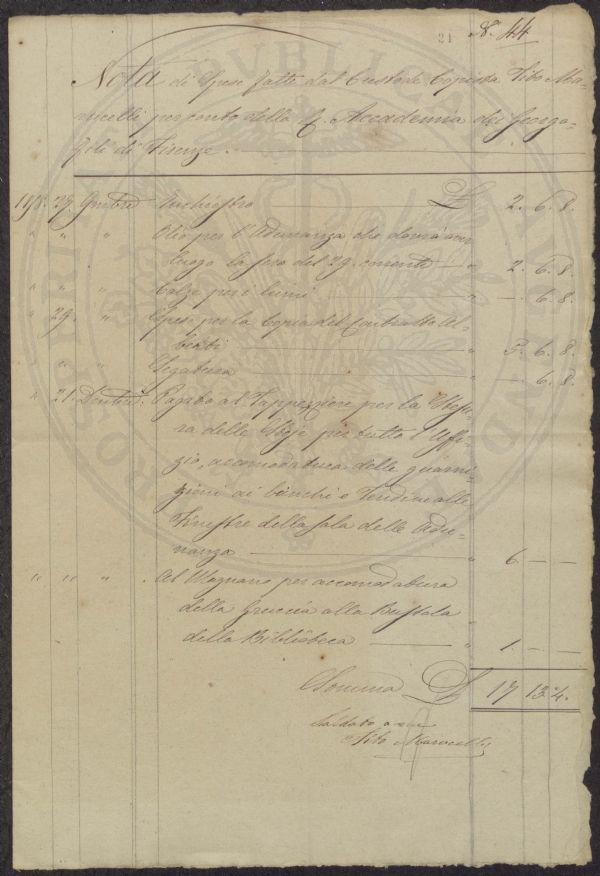 21 N.° 44
Nota di Spese fatte dal Custode Copista Tito Ma-
rucelli per conto della R. Accademia dei Georgo-
fili di Firenze.
29. 9mbre Inchiostro £ 2. 6. 8.
" " " Olio per l'Adunanza che dovrà aver
luogo la sera del 29. corrente " 2. 6. 8.
" " " Calze per i lumi " —. 6. 8.
" 29. " Spese per la Copia del Contratto Al-
berti " 5. 6. 8.
" " " Legatura " —. 6. 8.
" 21. Dicembre. Pagato al Tappezziere per la Stesu-
ra delle Stoje per tutto l'Uffi-
zio, accomodatura delle guarni-
zioni ai banchi e Tendine alle
Finestre della sala delle Adu-
nanza " 6. — —
" " " . Al Magnano per accomodatura
della gruccia alla Bussola
della Biblioteca " 1. — —
Somma £ 17 13. 4.
Saldato
Tito Marucelli
PROSPERITATI PUBLICAE AUGENDAE